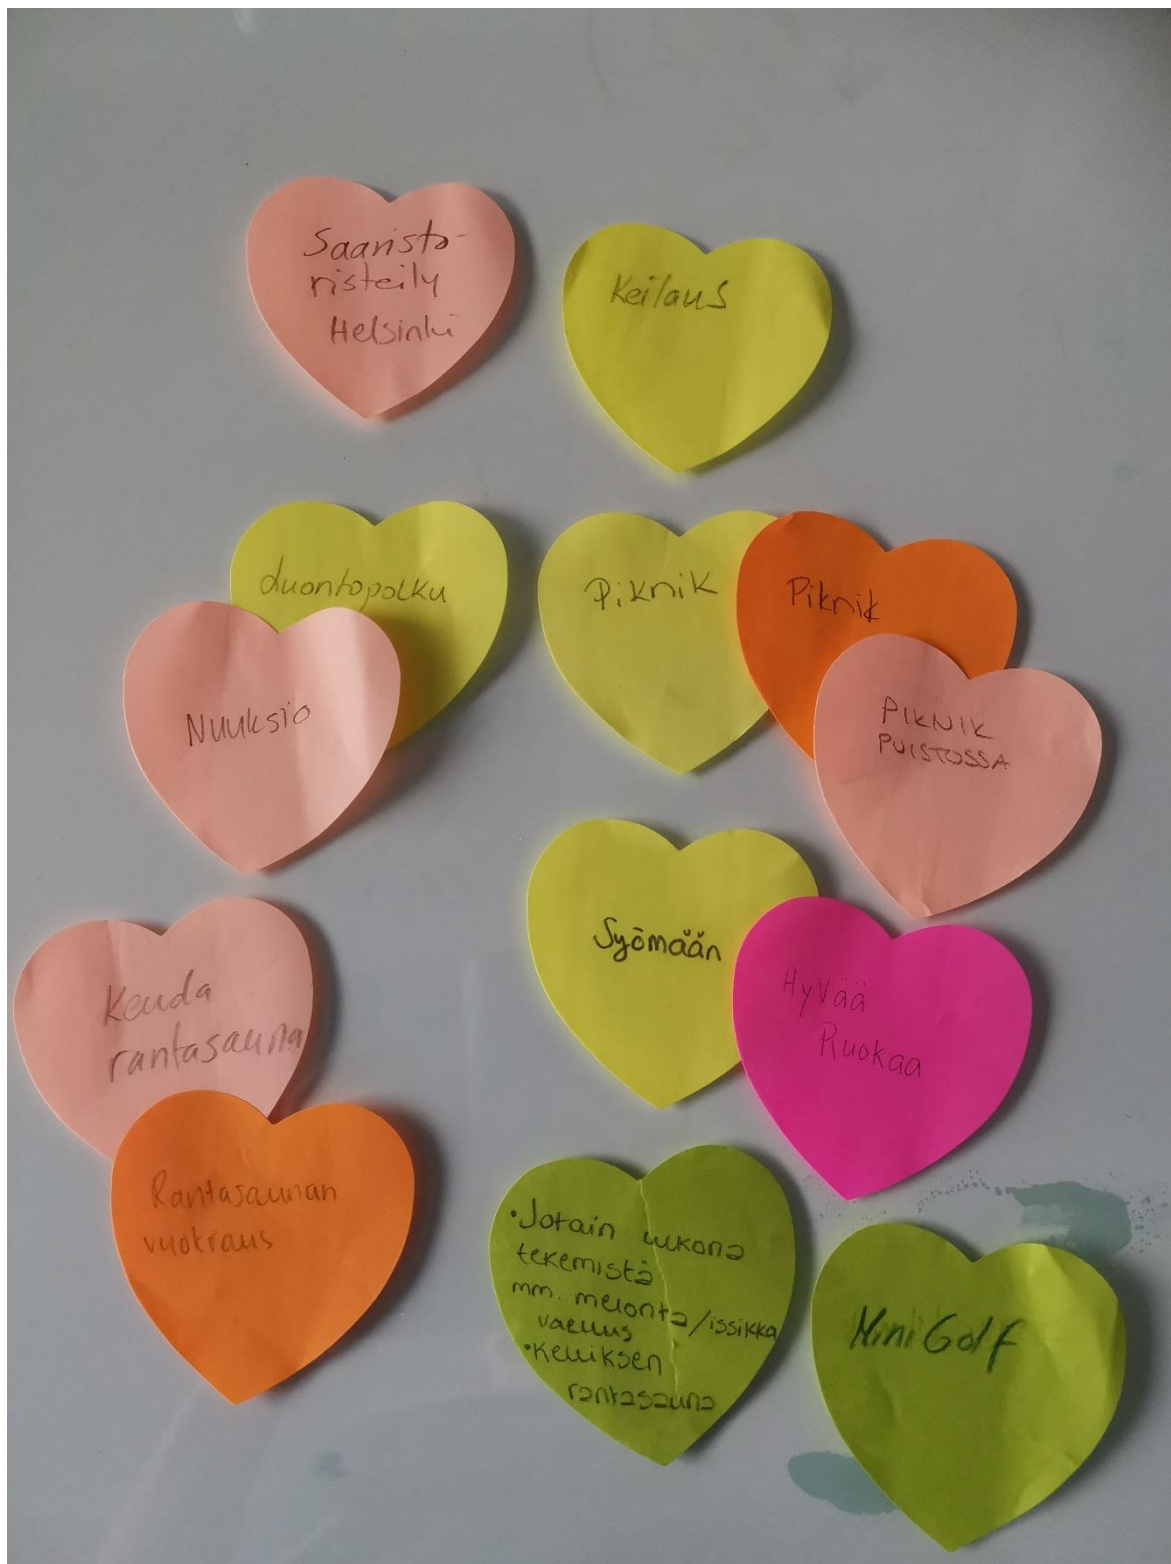 Saaristo-
risteily
Helsinki
Keilaus
Luontopolku
Nuuksio
Piknik
Piknik
PIKNIK
PUISTOSSA
Syömään
Hyvää
Ruokaa
Keuda
rantasauna
Rantasaunan
vuokraus
•Jotain ulkona
tekemistä
mm. melonta/issikka
vaellus
•Kelliksen
rantasauna
MiniGolf